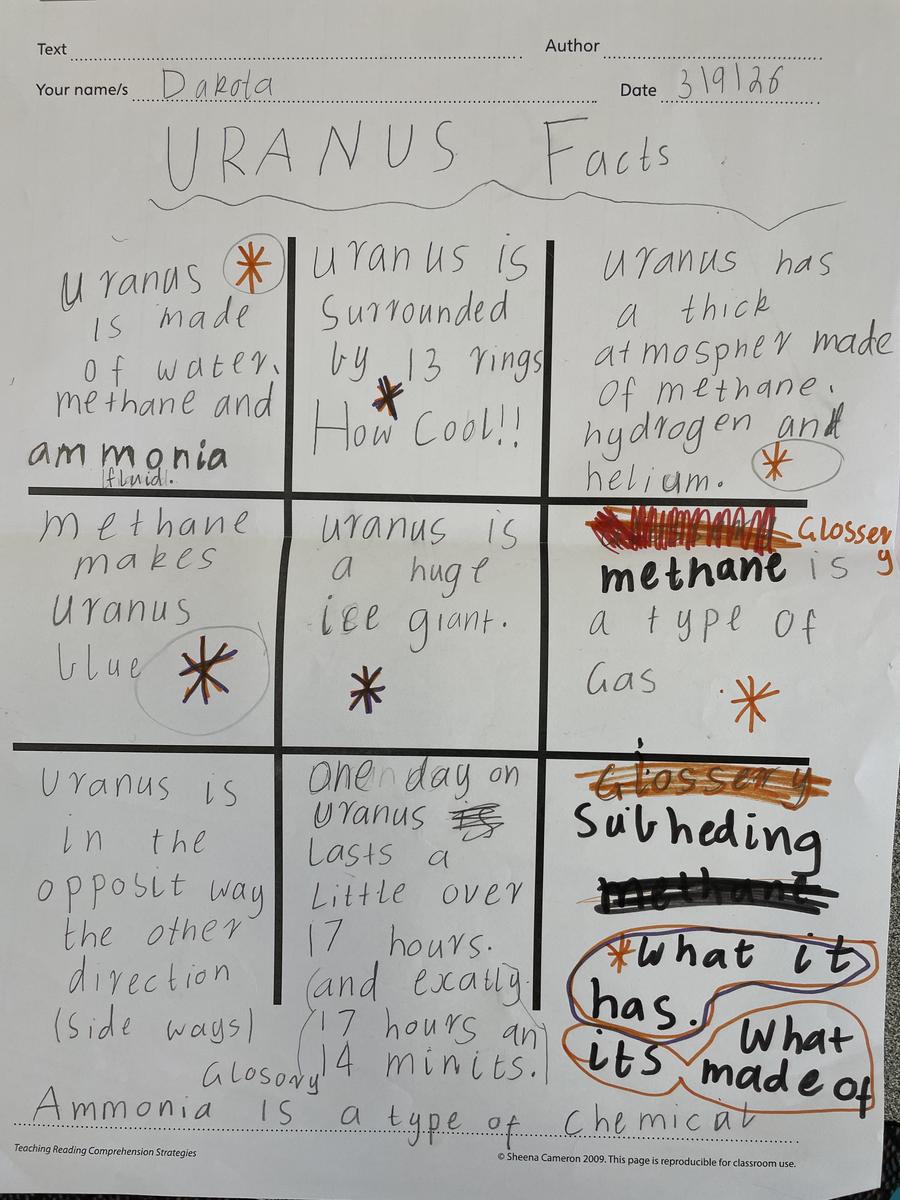 Text
Author
Your name/s Dakota
Date 3/9/26
URANUS Facts
Uranus
is made
of water,
methane and
ammonia
fluid.
Uranus is
Surrounded
by 13 rings
How Cool!!
Uranus has
a thick
atmospher made
of methane,
hydrogen and
helium.
methane
makes
Uranus
blue
Uranus is
a huge
ice giant.
Glossery
methane is
a type of
Gas
Uranus is
in the
opposit way
the other
direction
(Side ways)
One day on
Uranus
Lasts a
Little over
17 hours.
(and excatly
17 hours an
14 minits.)
Glossery
Subheding
methane
*What it
has.
its What
made of
Glosory
Ammonia is a type of chemical
Teaching Reading Comprehension Strategies
© Sheena Cameron 2009. This page is reproducible for classroom use.